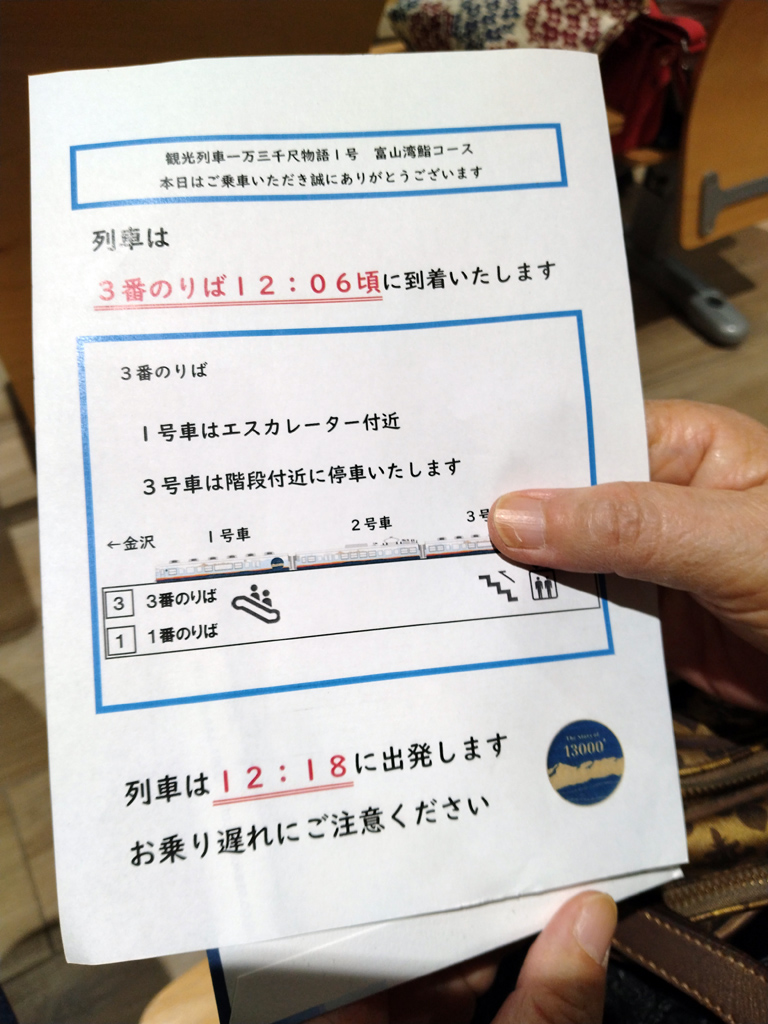 観光列車一万三千尺物語1号　富山湾鮨コース
本日はご乗車いただき誠にありがとうございます
列車は
３番のりば１２：０６頃に到着いたします
３番のりば
１号車はエスカレーター付近
３号車は階段付近に停車いたします
←金沢　１号車　２号車　３号
3　３番のりば
1　１番のりば
列車は１２：１８に出発します
お乗り遅れにご注意ください
The Story of
13000'